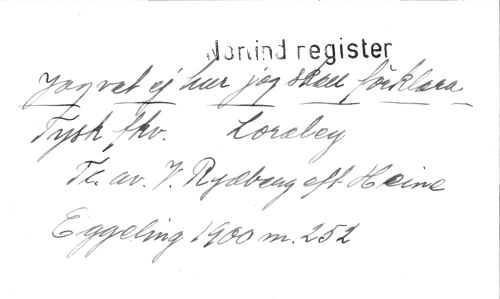 Norlind register
Jag vet ej hur jag skall förklara
Tysk fkv. Loreley
Tr. av. V. Rydberg eft. Heine
Eggeling 1900 m. 252